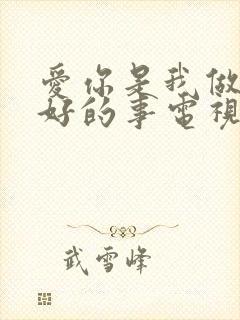 愛你是我做
好的事電視
武雪峰